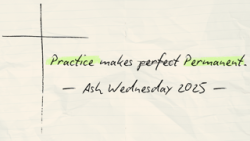 Practice makes perfect Permanent.
— Ash Wednesday 2025 —